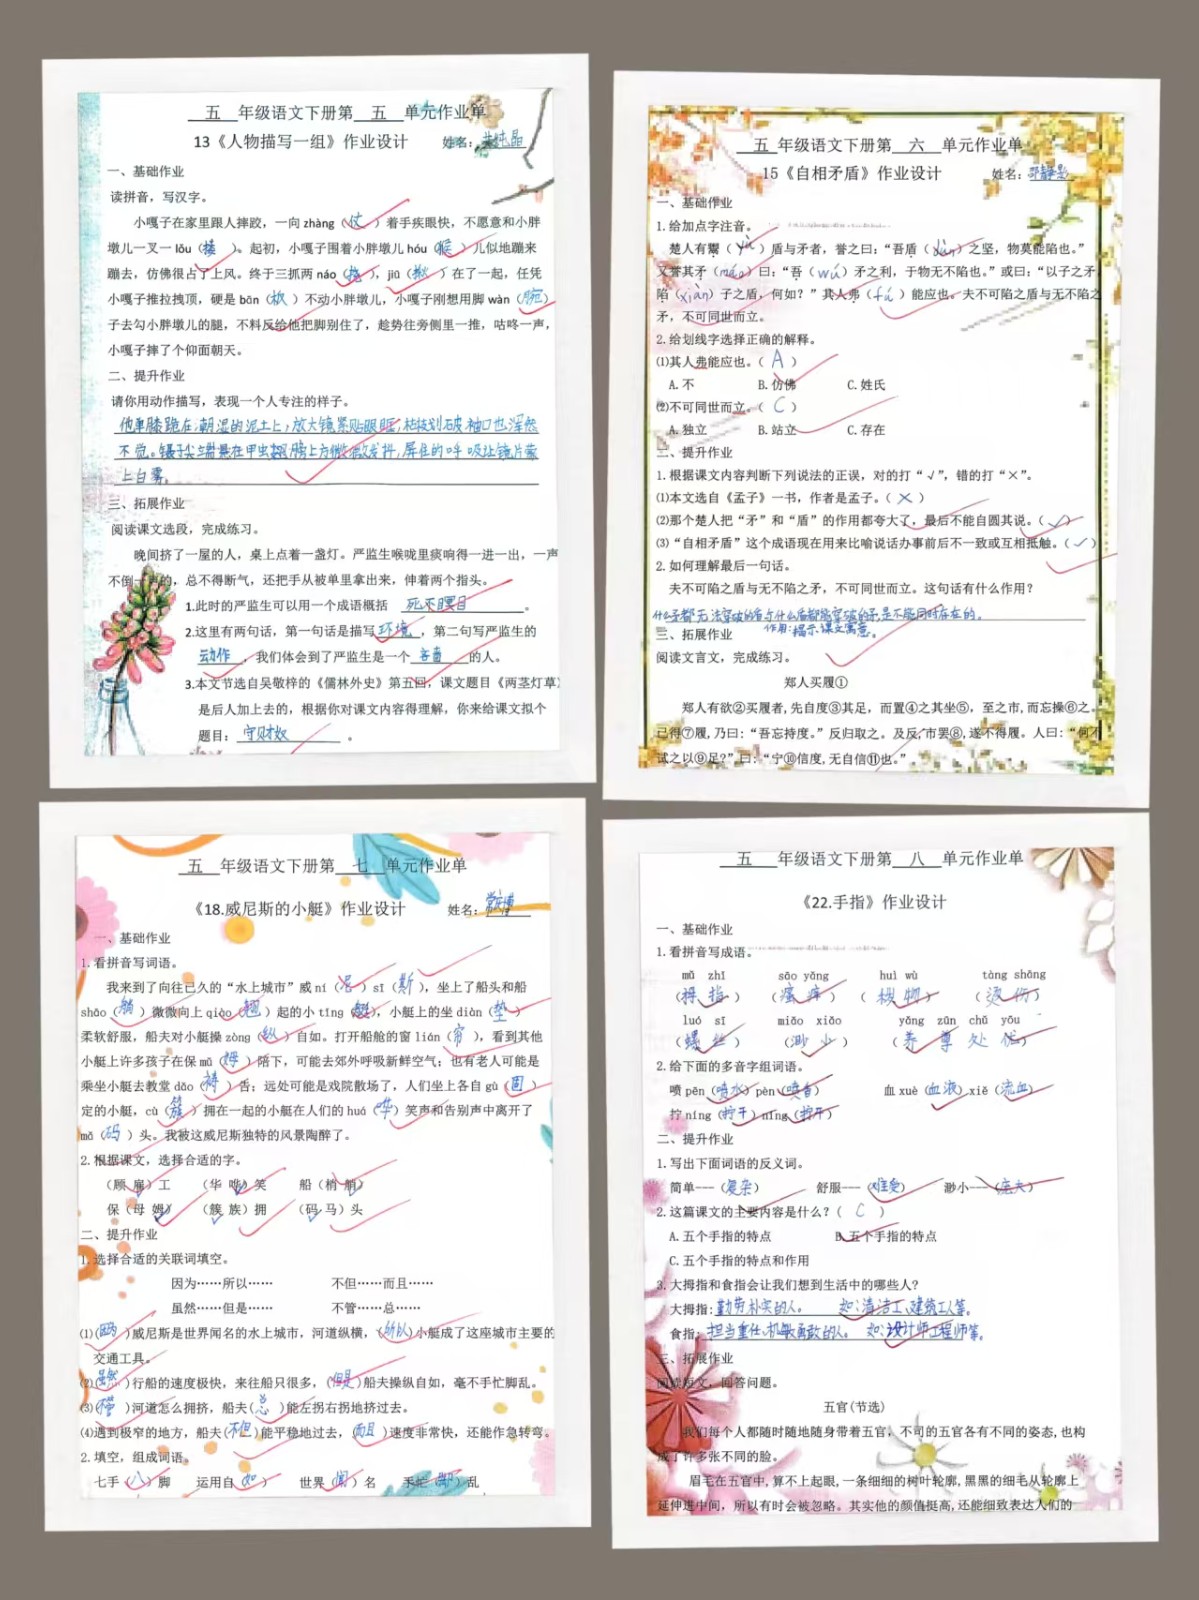 五 年级语文下册第 五 单元作业单
13《人物描写一组》作业设计 姓名：
一、基础作业
读拼音，写汉字。
小嘎子在家里跟人摔跤，一向zhàng（仗）着手疾眼快，不愿意和小胖
墩儿一叉一lǒu（搂）。起初，小嘎子围着小胖墩儿hóu（猴）儿似地蹦来
蹦去，仿佛很占了上风。终于三抓两náo（挠），jiū（揪）在了一起，任凭
小嘎子推拉拽顶，硬是bān（扳）不动小胖墩儿，小嘎子刚想用脚wàn（腕）
子去勾小胖墩儿的腿，不料反给他把脚别住了，趁势往旁侧里一推，咕咚一声，
小嘎子摔了个仰面朝天。
二、提升作业
请你用动作描写，表现一个人专注的样子。
他单膝跪在潮湿的泥土上，放大镜紧贴眼眶，枯枝划破袖口也浑然
不觉。镊子尖端悬在甲虫翅膀上方微微发抖，屏住的呼吸让镜片蒙
上白雾。
三、拓展作业
阅读课文选段，完成练习。
晚间挤了一屋的人，桌上点着一盏灯。严监生喉咙里痰响得一进一出，一声
不倒一声的，总不得断气，还把手从被单里拿出来，伸着两个指头。
1.此时的严监生可以用一个成语概括 死不瞑目 。
2.这里有两句话，第一句话是描写 环境 ，第二句写严监生的
动作 ，我们体会到了严监生是一个 吝啬 的人。
3.本文节选自吴敬梓的《儒林外史》第五回，课文题目《两茎灯草》
是后人加上去的，根据你对课文内容得理解，你来给课文拟个
题目： 守财奴 。
五 年级语文下册第 六 单元作业单
15《自相矛盾》作业设计 姓名：
一、基础作业
1.给加点字注音。
楚人有鬻（yù）盾与矛者，誉之曰：“吾盾（dùn）之坚，物莫能陷也。”
又誉其矛（máo）曰：“吾（wú）矛之利，于物无不陷也。”或曰：“以子之矛
陷（xiàn）子之盾，何如？”其人弗（fú）能应也。夫不可陷之盾与无不陷之
矛，不可同世而立。
2.给划线字选择正确的解释。
⑴其人弗能应也。（ A ）
A.不 B.仿佛 C.姓氏
⑵不可同世而立。（ C ）
A.独立 B.站立 C.存在
二、提升作业
1.根据课文内容判断下列说法的正误，对的打“√”，错的打“×”。
⑴本文选自《孟子》一书，作者是孟子。（×）
⑵那个楚人把“矛”和“盾”的作用都夸大了，最后不能自圆其说。（✓）
⑶“自相矛盾”这个成语现在用来比喻说话办事前后不一致或互相抵触。（✓）
2.如何理解最后一句话。
夫不可陷之盾与无不陷之矛，不可同世而立。这句话有什么作用？
什么矛都无法穿破的盾与什么盾都能穿破的矛,是不能同时存在的。
作用：揭示课文寓意。
三、拓展作业
阅读文言文，完成练习。
郑人买履①
郑人有欲②买履者,先自度③其足，而置④之其坐⑤，至之市,而忘操⑥之。
已得⑦履,乃曰：“吾忘持度。”反归取之。及反,市罢⑧,遂不得履。人曰：“何不
试之以⑨足?”曰：“宁⑩信度,无自信⑪也。”
五 年级语文下册第 七 单元作业单
《18.威尼斯的小艇》作业设计 姓名：
一、基础作业
1.看拼音写词语。
我来到了向往已久的“水上城市”威ní（尼）sī（斯），坐上了船头和船
shāo（艄）微微向上qiào（翘）起的小tǐng（艇），小艇上的坐diàn（垫）
柔软舒服，船夫对小艇操zòng（纵）自如。打开船舱的窗lián（帘），看到其他
小艇上许多孩子在保mǔ（姆）陪下，可能去郊外呼吸新鲜空气；也有老人可能是
乘坐小艇去教堂dǎo（祷）告；远处可能是戏院散场了，人们坐上各自gù（固）
定的小艇，cù（簇）拥在一起的小艇在人们的huá（哗）笑声和告别声中离开了
mǎ（码）头。我被这威尼斯独特的风景陶醉了。
2.根据课文，选择合适的字。
（顾 雇）工 （华 哗）笑 船（梢 艄）
保（母 姆） （簇 族）拥 （码 马）头
二、提升作业
1.选择合适的关联词填空。
因为……所以…… 不但……而且……
虽然……但是…… 不管……总……
⑴（因为）威尼斯是世界闻名的水上城市，河道纵横，（所以）小艇成了这座城市主要的
交通工具。
⑵（虽然）行船的速度极快，来往船只很多，（但是）船夫操纵自如，毫不手忙脚乱。
⑶（不管）河道怎么拥挤，船夫（总）能左拐右拐地挤过去。
⑷遇到极窄的地方，船夫（不但）能平稳地过去，（而且）速度非常快，还能作急转弯。
2.填空，组成词语。
七手（八）脚 运用自（如） 世界（闻）名 手忙（脚）乱
五 年级语文下册第 八 单元作业单
《22.手指》作业设计
一、基础作业
1.看拼音写成语。
mǔ zhǐ sāo yǎng huì wù tàng shāng
（拇 指） （搔 痒） （ 秽 物） （烫 伤）
luó sī miǎo xiǎo yǎng zūn chǔ yōu
（螺 丝） （渺 小） （养 尊 处 优）
2.给下面的多音字组词语。
喷pēn（喷水）pèn（喷香） 血xuè（血液）xiě（流血）
拧níng（拧干）nǐng（拧开）
二、提升作业
1.写出下面词语的反义词。
简单---（复杂） 舒服---（难受） 渺小---（庞大）
2.这篇课文的主要内容是什么？（ C ）
A.五个手指的特点 B.五个手指的特点
C.五个手指的特点和作用
3.大拇指和食指会让我们想到生活中的哪些人?
大拇指:勤劳朴实的人。 如：清洁工、建筑工人等。
食指:担当重任、机敏勇敢的人。 如：设计师工程师等。
三、拓展作业
阅读短文，回答问题。
五官(节选)
我们每个人都随时随地随身带着五官，不司的五官各有不同的姿态,也构
成了许多张不同的脸。
眉毛在五官中,算不上起眼,一条细细的树叶轮廓,黑黑的细毛从轮廓上
延伸进中间，所以有时会被忽略。其实他的颜值挺高,还能细致表达人们的